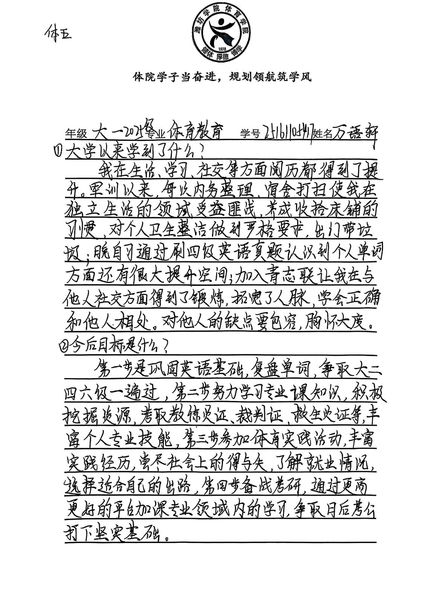 体五
潍坊学院体育学院
体院学子当奋进，规划领航筑学风
年级 大一2025级 专业 体育教育 学号 姓名 万语轩
①大学以来学到了什么？
我在生活、学习、社交等方面阅历都得到了提
升。军训以来，每次内务整理，宿舍打扫使我在
独立生活的领域受益匪浅，养成收拾床铺的
习惯，对个人卫生整洁做到严格要求，出门带垃
圾；晚自习通过刷四级英语真题认识到个人单词
方面还有很大提升空间；加入青志联让我在与
他人社交方面得到了锻炼，拓宽了人脉，学会正确
和他人相处。对他人的缺点要包容，胸怀大度。
②今后目标是什么？
第一步是巩固英语基础，复盘单词，争取大二
四六级一遍过，第二步努力学习专业课知识，积极
挖掘资源，考取教练员证、裁判证、救生员证等，丰
富个人专业技能，第三步参加体育实践活动，丰富
实践经历，尝尽社会上的得与失，了解就业情况，
选择适合自己的出路，第四步备战考研，通过更高
更好的平台加深专业领域内的学习，争取日后考公
打下坚实基础。